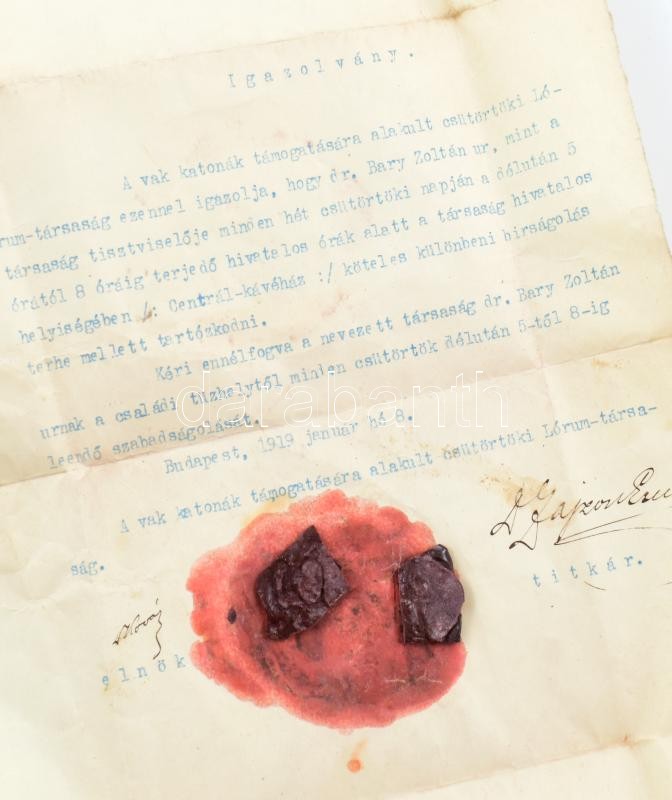 Igazolvány.
A vak katonák támogatására alakult csütörtöki Ló-
rum-társaság ezennel igazolja, hogy dr. Bary Zoltán ur, mint a
társaság tisztviselője minden hét csütörtöki napján a délután 5
órától 8 óráig terjedő hivatalos órák alatt a társaság hivatalos
helyiségében /: Centrál-kávéház :/ köteles különbeni birságolás
terhe mellett tartózkodni.
Kéri ennélfogva a nevezett társaság dr. Bary Zoltán
urnak a családi tüzhelytől minden csütörtök délután 5-től 8-ig
leendő szabadságolását.
Budapest, 1919 január hó 8.
A vak katonák támogatására alakult csütörtöki Lórum-társa-
ság.
titkár.
elnök
darabanth